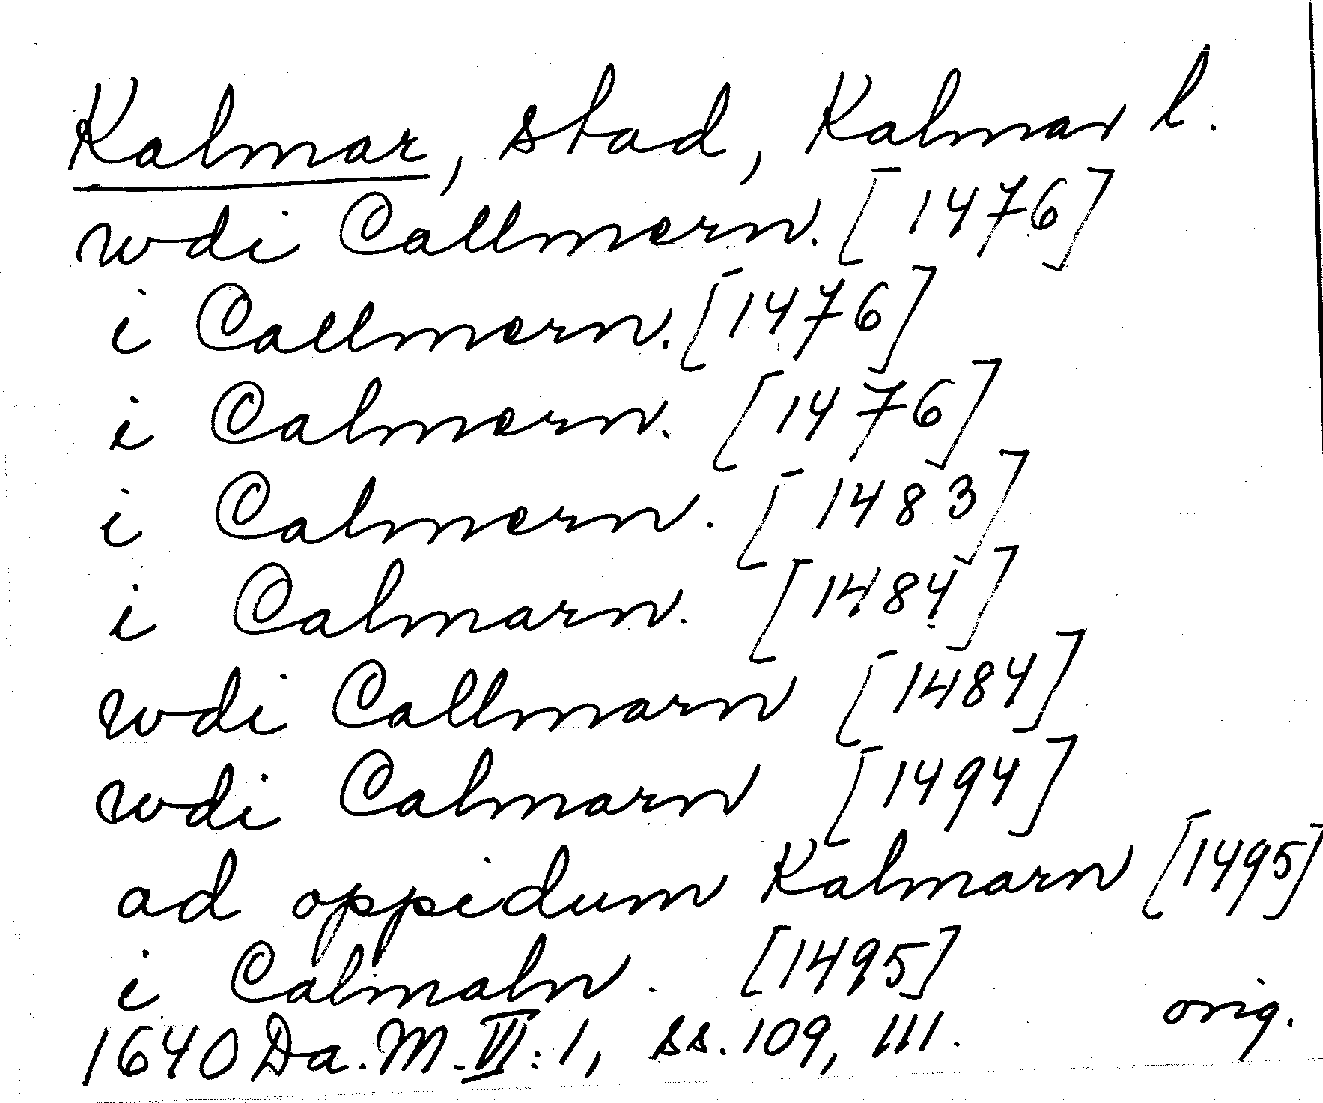 Kalmar, stad, Kalmar l.
wdi Callmern. [1476]
i Callmern. [1476]
i Calmern. [1476]
i Calmern. [1483]
i Calmarn. [1484]
wdi Callmarn [1484]
wdi Calmarn [1494]
ad oppidum Kalmarn [1495]
i Calmaln. [1495]
orig.
1640 Da. M. VI: 1, ss. 109, 111.